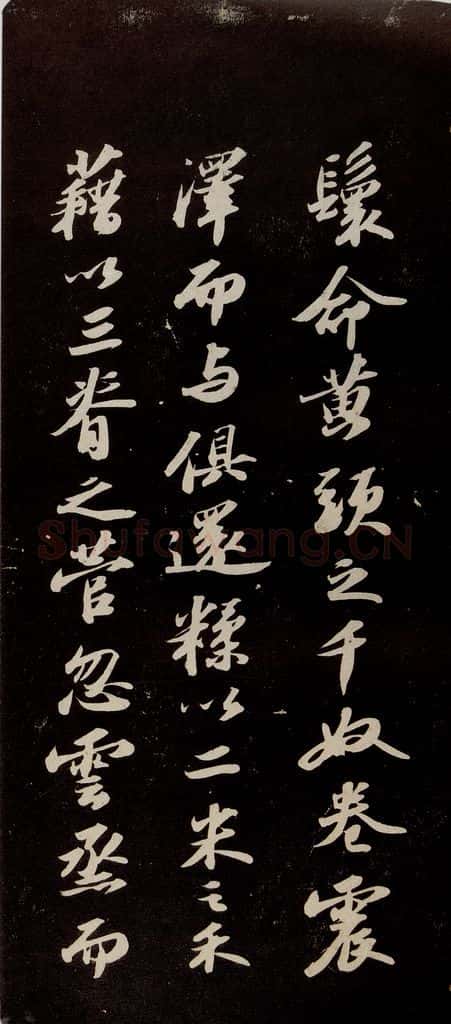 鬟命黄頭之千奴卷震
澤而与俱還糅以二米之禾
藉以三脊之菅忽雲烝而
Shufawang.CN